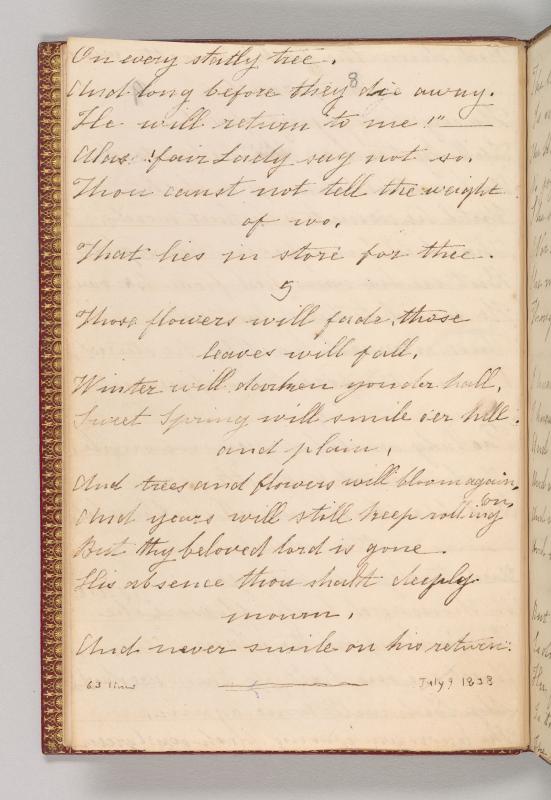 On every statly tree.
And long before they die away.
8
He will return to me!"—
Alas fair Lady say not so.
Thou canst not tell the weight
of wo.
That lies in store for thee.
5
Those flowers will fade, those
leaves will fall,
Winter will darken yonder hall,
Sweet Spring will smile oer hill
and plain,
And trees and flowers will bloom again,
And years will still keep rolling on,
But thy beloved lord is gone.
His absence thou shalt deeply
mourn,
And never smile on his return.
63 lines July 9 1838